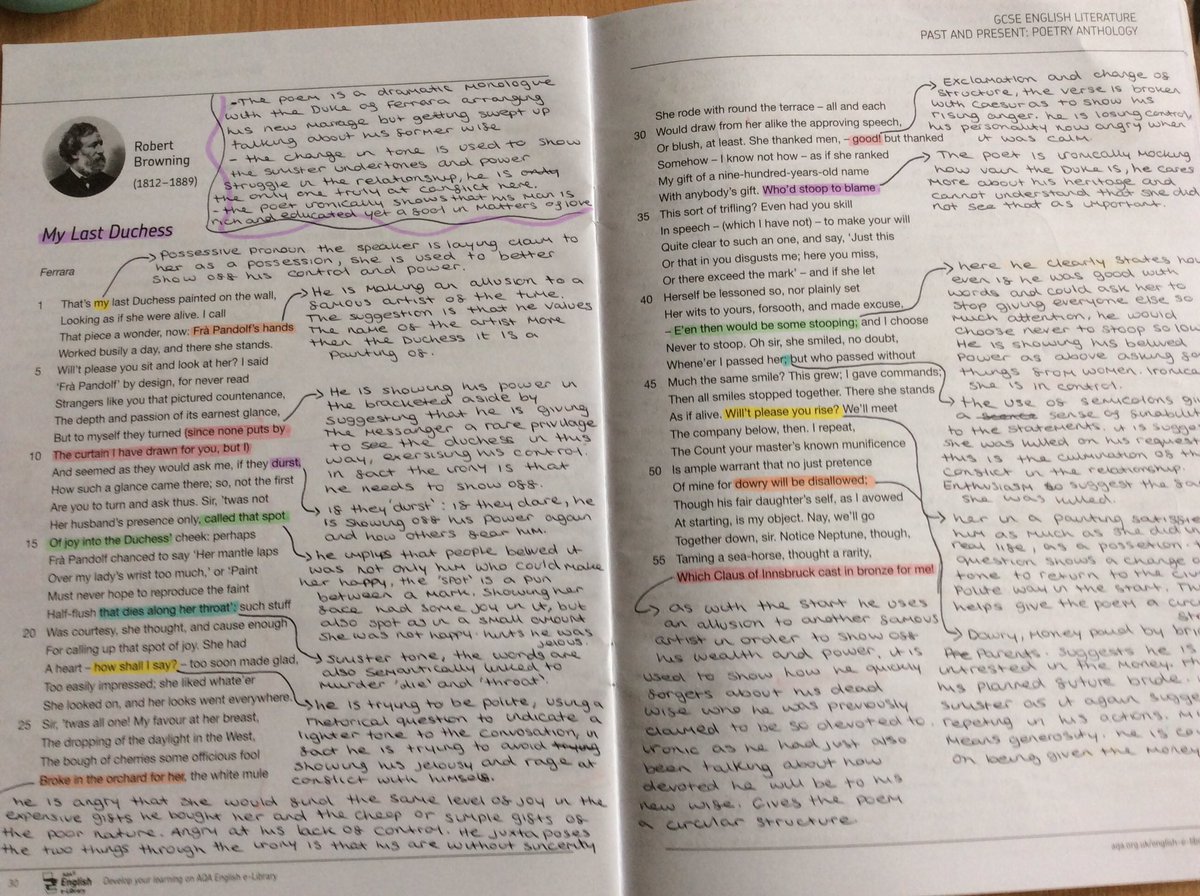 GCSE ENGLISH LITERATURE
PAST AND PRESENT: POETRY ANTHOLOGY
- The poem is a dramatic monologue
with the Duke of Ferrara arranging
his new mariage but getting swept up
talking about his former wife
- the change in tone is used to show
the sinister undertones and power
struggle in the relationship, he is
the only one truly at conflict here.
- the poet ironically shows that his man is
rich and educated yet a fool in matters of love
Robert
Browning
(1812–1889)
My Last Duchess
Possessive pronoun the speaker is laying claim to
her as a possession, she is used to better
show off his control and power.
Ferrara
1 That's my last Duchess painted on the wall,
Looking as if she were alive. I call
That piece a wonder, now: Frà Pandolf's hands
Worked busily a day, and there she stands.
5 Will't please you sit and look at her? I said
'Frà Pandolf' by design, for never read
Strangers like you that pictured countenance,
The depth and passion of its earnest glance,
But to myself they turned (since none puts by
10 The curtain I have drawn for you, but I)
And seemed as they would ask me, if they durst,
How such a glance came there; so, not the first
Are you to turn and ask thus. Sir, 'twas not
Her husband's presence only, called that spot
15 Of joy into the Duchess' cheek: perhaps
Frà Pandolf chanced to say 'Her mantle laps
Over my lady's wrist too much,' or 'Paint
Must never hope to reproduce the faint
Half-flush that dies along her throat': such stuff
20 Was courtesy, she thought, and cause enough
For calling up that spot of joy. She had
A heart – how shall I say? – too soon made glad,
Too easily impressed; she liked whate'er
She looked on, and her looks went everywhere.
25 Sir, 'twas all one! My favour at her breast,
The dropping of the daylight in the West,
The bough of cherries some officious fool
Broke in the orchard for her, the white mule
He is making an allusion to a
famous artist of the time.
The suggestion is that he values
the name of the artist more
then the Duchess it is a
painting of.
He is showing his power in
the bracketed aside by
suggesting that he is giving
the messanger a rare privilage
to see the duchess in this
way, exersising his control.
in fact the irony is that
he needs to show off.
if they 'durst': if they dare, he
is showing off his power again
and how others fear him.
he implys that people belived it
was not only him who could make
her happy, the 'spot' is a pun
between a mark. Showing her
face had some joy in it, but
also spot as in a small amount
she was not happy. hints he was
jelous.
Sinister tone, the words are
also semantically linked to
murder 'die' and 'throat'.
he is trying to be polite, using a
rhetorical question to indicate a
lighter tone to the convosation, in
fact he is trying to avoid trying
showing his jelousy and rage at
conflict with himself.
he is angry that she would find the same level of joy in the
expensive gifts he bought her and the cheap or simple gifts of
the poor nature. Angry at his lack of control. He juxtaposes
the two things through the irony is that his are without sincerity
30 AQA
English
e-Library
Develop your learning on AQA English e-Library
She rode with round the terrace – all and each
30 Would draw from her alike the approving speech,
Or blush, at least. She thanked men, – good! but thanked
Somehow – I know not how – as if she ranked
My gift of a nine-hundred-years-old name
With anybody's gift. Who'd stoop to blame
35 This sort of trifling? Even had you skill
In speech – (which I have not) – to make your will
Quite clear to such an one, and say, 'Just this
Or that in you disgusts me; here you miss,
Or there exceed the mark' – and if she let
40 Herself be lessoned so, nor plainly set
Her wits to yours, forsooth, and made excuse,
– E'en then would be some stooping; and I choose
Never to stoop. Oh sir, she smiled, no doubt,
Whene'er I passed her; but who passed without
45 Much the same smile? This grew; I gave commands;
Then all smiles stopped together. There she stands
As if alive. Will't please you rise? We'll meet
The company below, then. I repeat,
The Count your master's known munificence
50 Is ample warrant that no just pretence
Of mine for dowry will be disallowed;
Though his fair daughter's self, as I avowed
At starting, is my object. Nay, we'll go
Together down, sir. Notice Neptune, though,
55 Taming a sea-horse, thought a rarity,
Which Claus of Innsbruck cast in bronze for me!
Exclamation and change of
structure, the verse is broken
with caesuras to show his
rising anger. he is losing control,
his personality now angry when
it was calm.
The poet is ironically mocking
how vain the Duke is, he cares
more about his heritage and
cannot understand that she did
not see that as important.
here he clearly states how
even if he was good with
words and could ask her to
stop giving everyone else so
much attention, he would
choose never to stoop so low
He is showing his belived
power as above asking for
things from women. Ironica
she is in control.
the use of semicolons giv
a sense of finability
to the statements. it is sugge
she was killed on his request
this is the culmination of th
conflict in the relationship.
Enthusiasm to suggest the
she was killed.
her in a painting satisfi
him as much as she did in
real life, as a possetion.
question shows a change o
tone to return to the civ
polite way in the start. Th
helps give the poem a circ
Dowry, money paid by bri
parents. Suggests he is
intrested in the money.
his planned future bride.
sinister as it again sugge
repeting in his actions.
means generosity. he is co
on being given the money
as with the start he uses
an allusion to another famous
artist in order to show off
his wealth and power. it is
used to show how he quickly
forgets about his dead
wife who he was previously
claimed to be so devoted to.
ironic as he had just also
been talking about how
devoted he will be to his
new wife. Gives the poem
a circular structure.
aqa.org.uk/english-e-libr